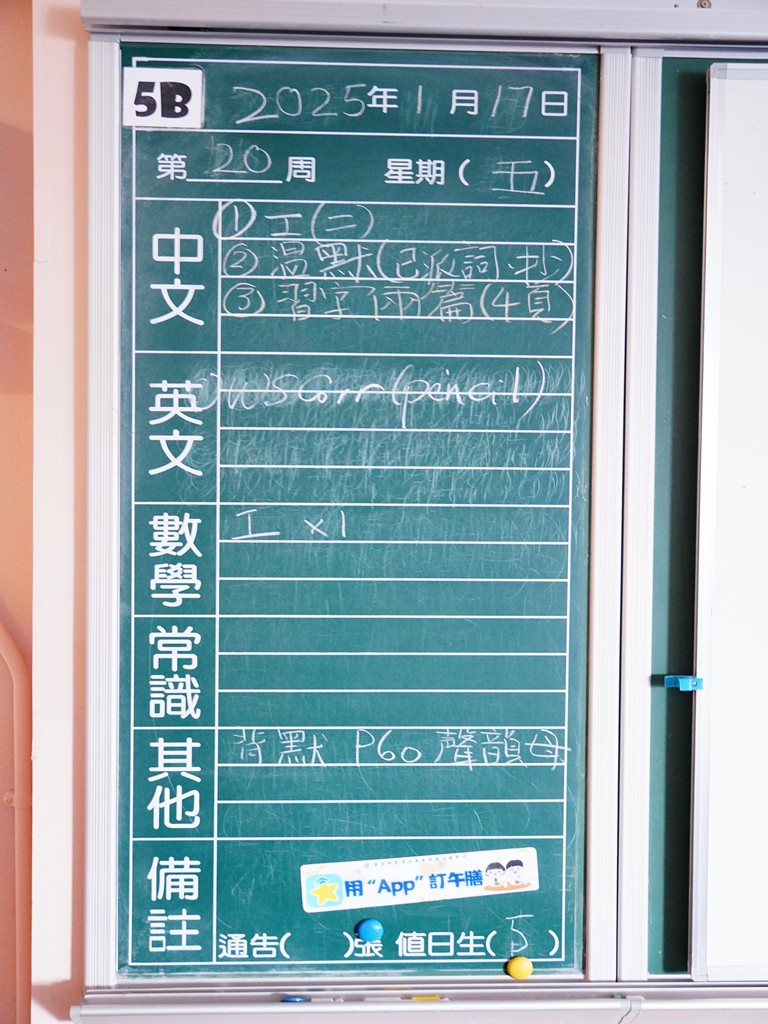 5B 2025年1月17日
第20周 星期(五)
中文
① 工(二)
② 温默(已派詞.抄)
③ 習字兩篇(4頁)
英文
① WS Corr (pencil)
數學
工 x1
常識
其他
背默 P60 聲韻母
備註
用“App”訂午膳
通告( )張 值日生(5)